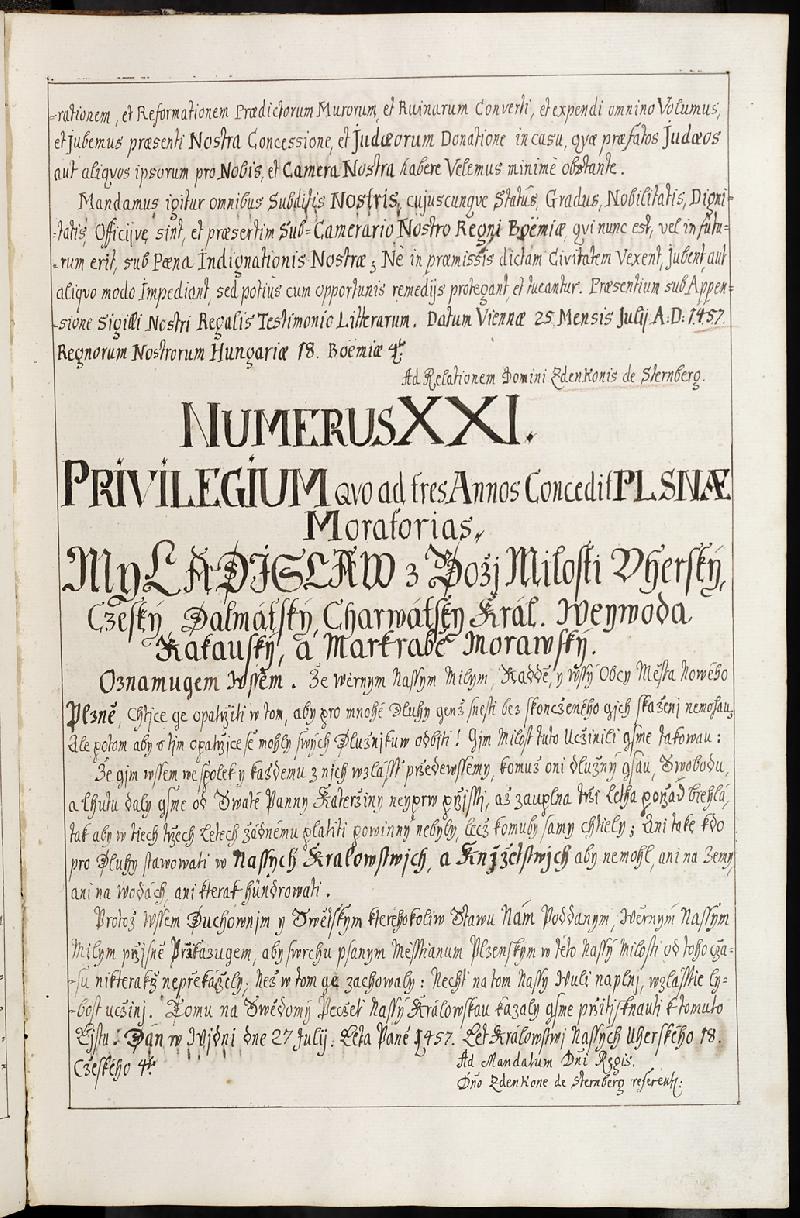 -rationem, et Reformationem Prædictorum Murorum, et Ruinarum Converti, et expendi omnino Volumus,
et jubemus præsenti Nostra Concessione, et Judæorum Donatione in casu, qvæ præfatos Judæos
aut aliqvos ipsorum pro Nobis, et Camera Nostra habere Velemus minimè obstante.
Mandamus igitur omnibus Subditis Nostris, cujuscunqve Status, Gradus, Nobilitatis, Digni-
-tatis, Officijve sint, et præsertim Sub-Camerario Nostro Regni Boëmiæ qvi nunc est, vel in futu-
-rum erit, sub Pæna Indignationis Nostræ; Nè in præmissis dictam Civitatem Vexent, Jubent, aut
aliqvo modo Impediant, sed potius cum opportunis remedijs protegant, et tueantur. Præsentium sub Appen-
-sione Sigilli Nostri Regalis Testimonio Litterarum. Datum Viennæ 25. Mensis Julij A: D: 1457.
Regnorum Nostrorum Hungariæ 18. Boëmiæ 4to
Ad Relationem Domini Zdenkonis de Sternberg.
NUMERUS XXI.
PRIVILEGIUM qvo ad tres Annos Concedit PLSNÆ
Moratorias.
My LADISLAW z Božj Milosti Vherský,
Czeský, Dalmátský, Charwátský Král. Weywoda
Rakauský, a Markrabě Morawský.
Oznamugem Wssem. Že wěrným Nassým Milým, Raddě, y wssý Obcy Města Nowého
Plzně, Chtice ge opatřiti w tom, aby pro mnohé Dluhy genž snésti bez skonczenkho gich skaženj nemohau,
Ale potom aby o tjm opatřice se mohly swých Dlužnjkuw odbiti! Gjm Milost tuto Uczinili gsme takowau:
Že gjm wssem wespolek y každému z nich wzlásst přede wssemy, komuž oni dlužny gsau, Swobodu,
a Lhutu daly gsme od Swaté Panny Kateržiny neyprw přisstj, až zauplna tři Letha pořád běžklá,
tak aby w tiech třzech Letech žádnému platiti powinny nebyly, lecž komuby samy chtiely; Ani také kdo
pro Dluhy stawowati w Nassych Kralowstwjch, a Knjžetstwjch aby nemohl, ani na Zemy
ani na Wodách, ani kterak hindrowati.
Protož Wssem Duchownjm y Swětským kteréhokoliw Stawu Nám Poddaným, Wěrným Nassým
Milým přjsně Přikazugem, aby swrchu psaným Měsstianum Plzenským w této Nassý Milosti od toho cža-
-su nikterakž nepřekáželý; Než w tom ge zachowaly: Nechti na tom Nassy Wuli naplnj, wzlásstie ly-
-bost uczinj. Tomu na Swědomj Peczeti Nassý Králowskau kázaly gsme přitisknauti k tomuto
Lystu. Dán w Wjdni dne 27 Julij: Léta Páně 1457. Let Králowstwj Nassých Uherského 18.
Czeského 4to
Ad Mandatum Dñi Regis.
Dño Zdenkone de Sternberg referente.